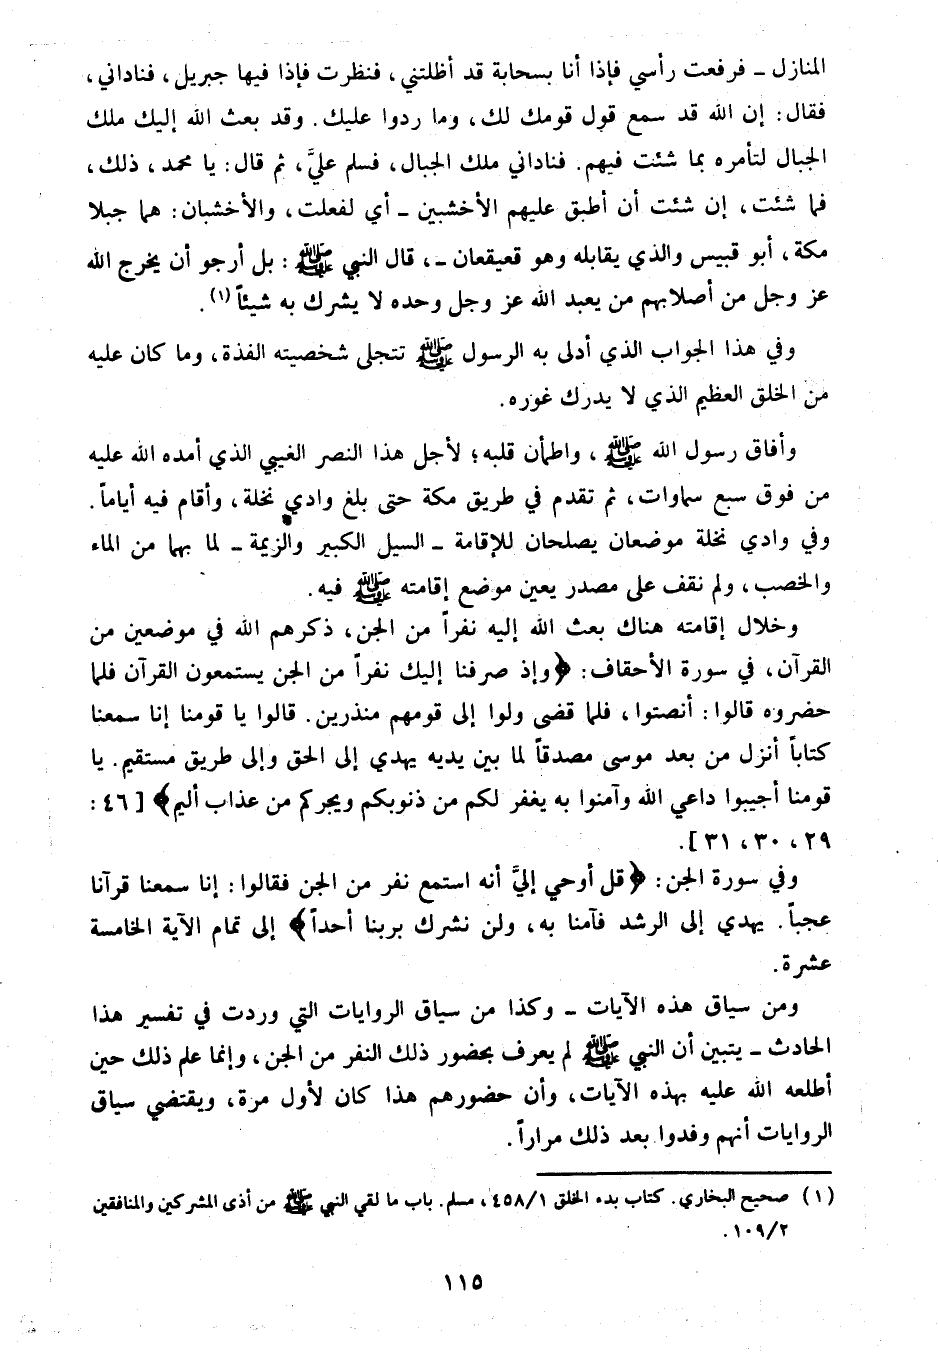 المنازل ـ فرفعت رأسي فإذا أنا بسحابة قد أظلتني، فنظرت فإذا فيها جبريل، فناداني،
فقال: إن الله قد سمع قول قومك لك، وما ردوا عليك. وقد بعث الله إليك ملك
الجبال لتأمره بما شئت فيهم. فناداني ملك الجبال، فسلم عليَّ، ثم قال: يا محمد، ذلك،
فما شئت، إن شئت أن أطبق عليهم الأخشبين ـ أي لفعلت، والأخشبان: هما جبلا
مكة، أبو قبيس والذي يقابله وهو قعيقعان ـ، قال النبي ﷺ: بل أرجو أن يخرج الله
عز وجل من أصلابهم من يعبد الله عز وجل وحده لا يشرك به شيئاً(١).
وفي هذا الجواب الذي أدلى به الرسول ﷺ تتجلى شخصيته الفذة، وما كان عليه
من الخلق العظيم الذي لا يدرك غوره.
وأفاق رسول الله ﷺ، واطمأن قلبه؛ لأجل هذا النصر الغيبي الذي أمده الله عليه
من فوق سبع سماوات، ثم تقدم في طريق مكة حتى بلغ وادي نخلة، وأقام فيه أياماً.
وفي وادي نخلة موضعان يصلحان للإقامة ـ السيل الكبير والزيمة ـ لما بهما من الماء
والخصب، ولم نقف على مصدر يعين موضع إقامته ﷺ فيه.
وخلال إقامته هناك بعث الله إليه نفراً من الجن، ذكرهم الله في موضعين من
القرآن، في سورة الأحقاف: ﴿وإذ صرفنا إليك نفراً من الجن يستمعون القرآن فلما
حضروه قالوا: أنصتوا، فلما قضى ولوا إلى قومهم منذرين. قالوا يا قومنا إنا سمعنا
كتاباً أنزل من بعد موسى مصدقاً لما بين يديه يهدي إلى الحق وإلى طريق مستقيم. يا
قومنا أجيبوا داعي الله وآمنوا به يغفر لكم من ذنوبكم ويجركم من عذاب أليم﴾ [٤٦:
٢٩، ٣٠، ٣١].
وفي سورة الجن: ﴿قل أوحي إليَّ أنه استمع نفر من الجن فقالوا: إنا سمعنا قرآنا
عجباً. يهدي إلى الرشد فآمنا به، ولن نشرك بربنا أحداً﴾ إلى تمام الآية الخامسة
عشرة.
ومن سياق هذه الآيات ـ وكذا من سياق الروايات التي وردت في تفسير هذا
الحادث ـ يتبين أن النبي ﷺ لم يعرف بحضور ذلك النفر من الجن، وإنما علم ذلك حين
أطلعه الله عليه بهذه الآيات، وأن حضورهم هذا كان لأول مرة، ويقتضي سياق
الروايات أنهم وفدوا بعد ذلك مراراً.
(١) صحيح البخاري. كتاب بدء الخلق ٤٥٨/١، مسلم. باب ما لقي النبي ﷺ من أذى المشركين والمنافقين
١٠٩/٢.
١١٥